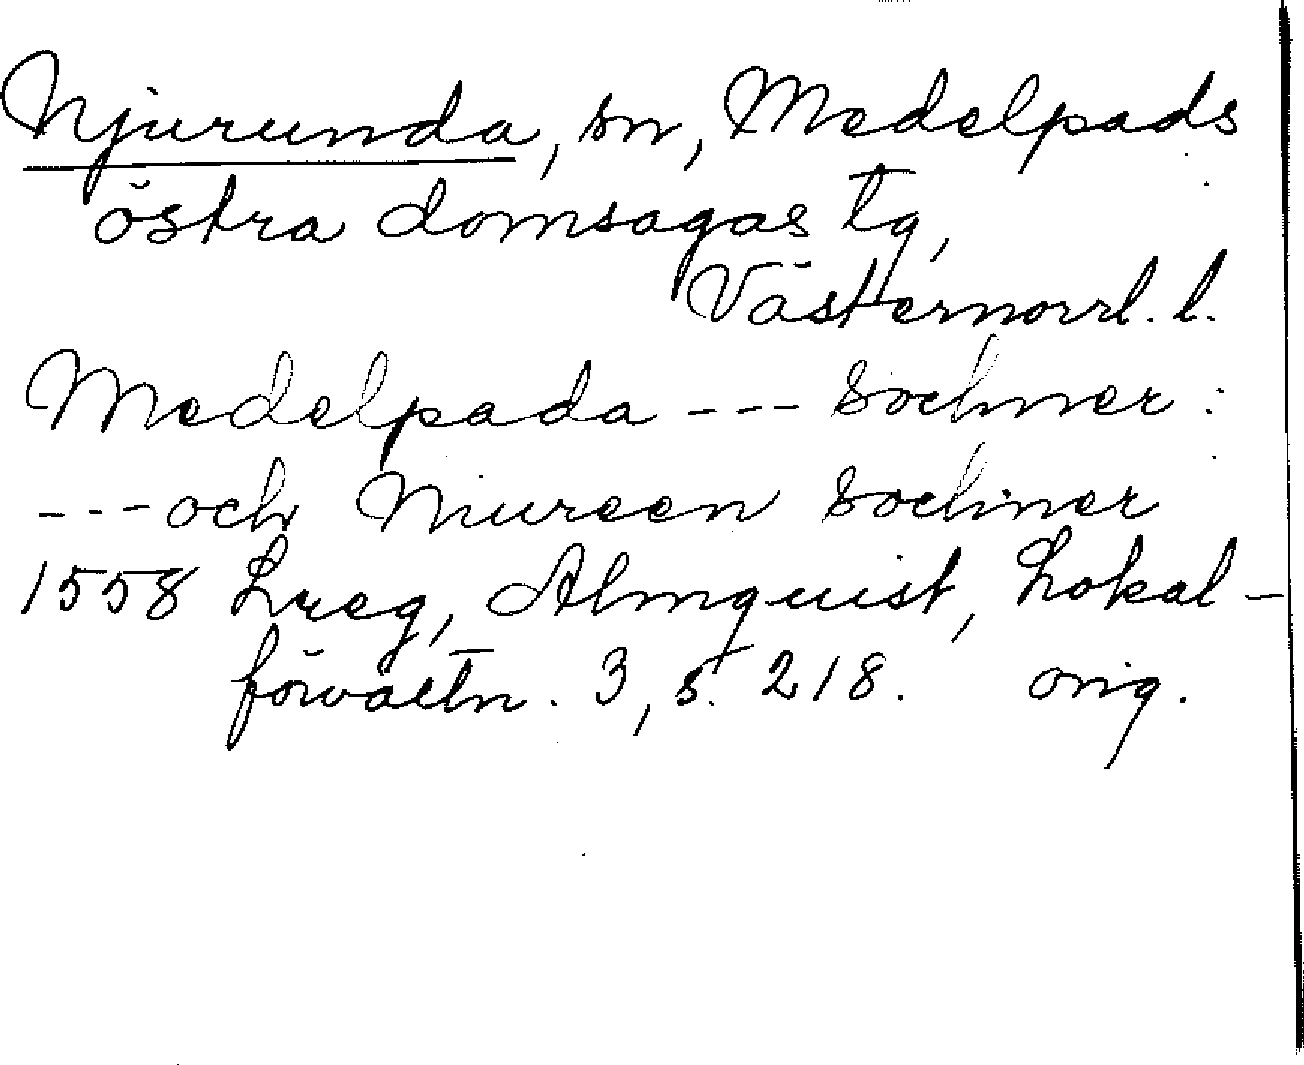 Njurunda, sn, Medelpads
östra domsagas tg,
Västernorrl. l.
Medelpada --- sochner:
--- och Niureen sochner
1558 Lreg, Almquist, Lokal-
förvaltn. 3, s. 218. orig.